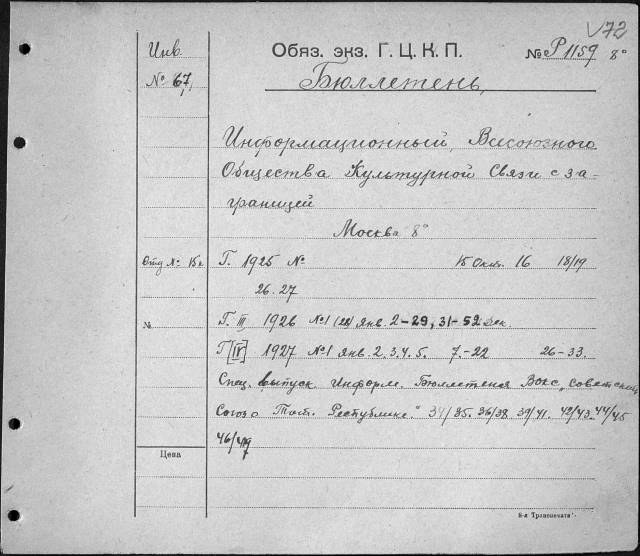 V72
Инв Обяз. экз. Г. Ц. К. П. № Р1159 8°
№ 67, Бюллетень,
Информационный, Всесоюзного
Общества Культурной Связи с за-
границей
Москва 8°
№ 15 Г. 1925 № 15 Окт. 16 18/19
26. 27
№ Г. III 1926 №1 (28) янв. 2-29, 31-52 дек.
Г [IV] 1927 №1 янв. 2. 3. 4. 5. 7-22 26-33.
Спец. выпуск Информ. Бюллетеня Вокс „Советский
Союз Республике“ 34/35. 36/38. 39/41. 42/43. 44/45
46/49
Цена
8-я Транспечати